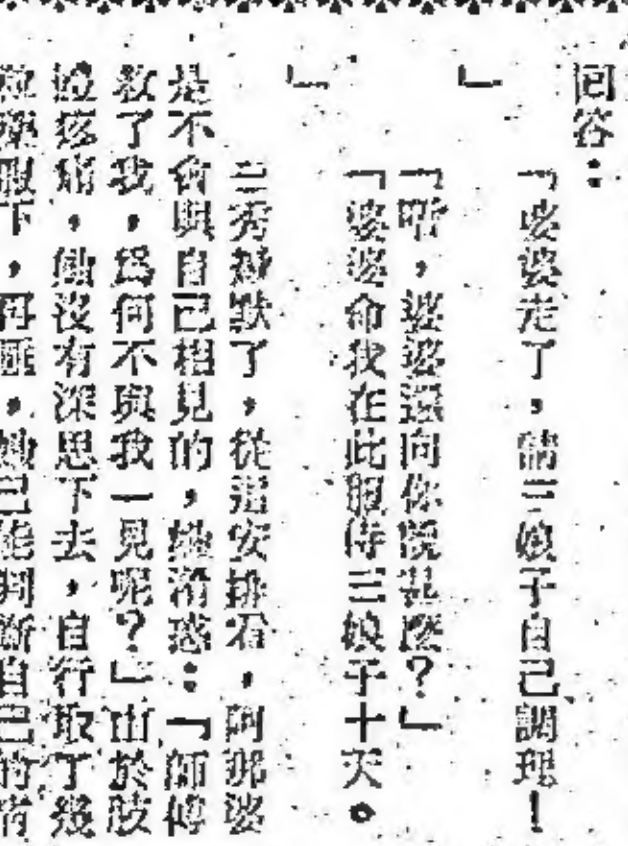 回答：
「婆婆走了，請三娘子自己調理！
」
「唔，婆婆還向你說甚麼？」
「婆婆命我在此服侍三娘子十天。
」
三秀靜默了，從這安排看，阿那婆
是不會與自己相見的，她漸惑：「師傅
救了我，爲何不與我一見呢？」由於肢
體疼痛，她沒有深思下去，自行取了幾
藥服下，再睡，她已能判斷自己的